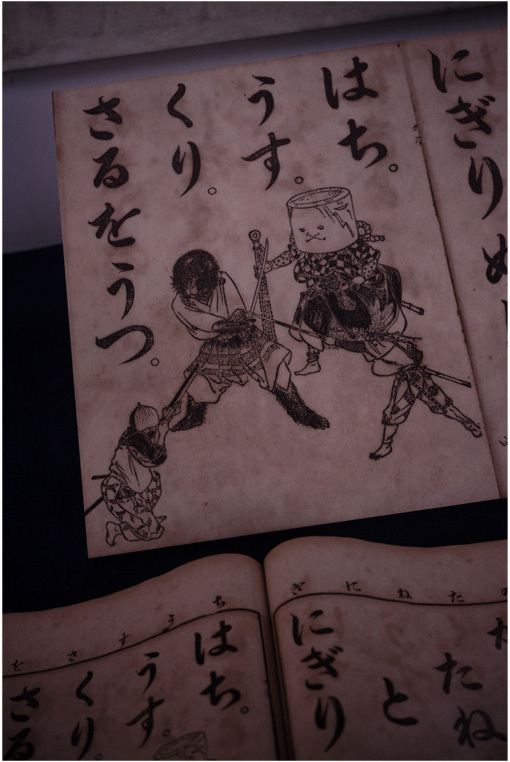 にぎり
はち。
うす。
くり。
さるをうつ。
ぎにねた
にぎり
と
たね
ちうすさを
はち。
うす。
くり。
さる